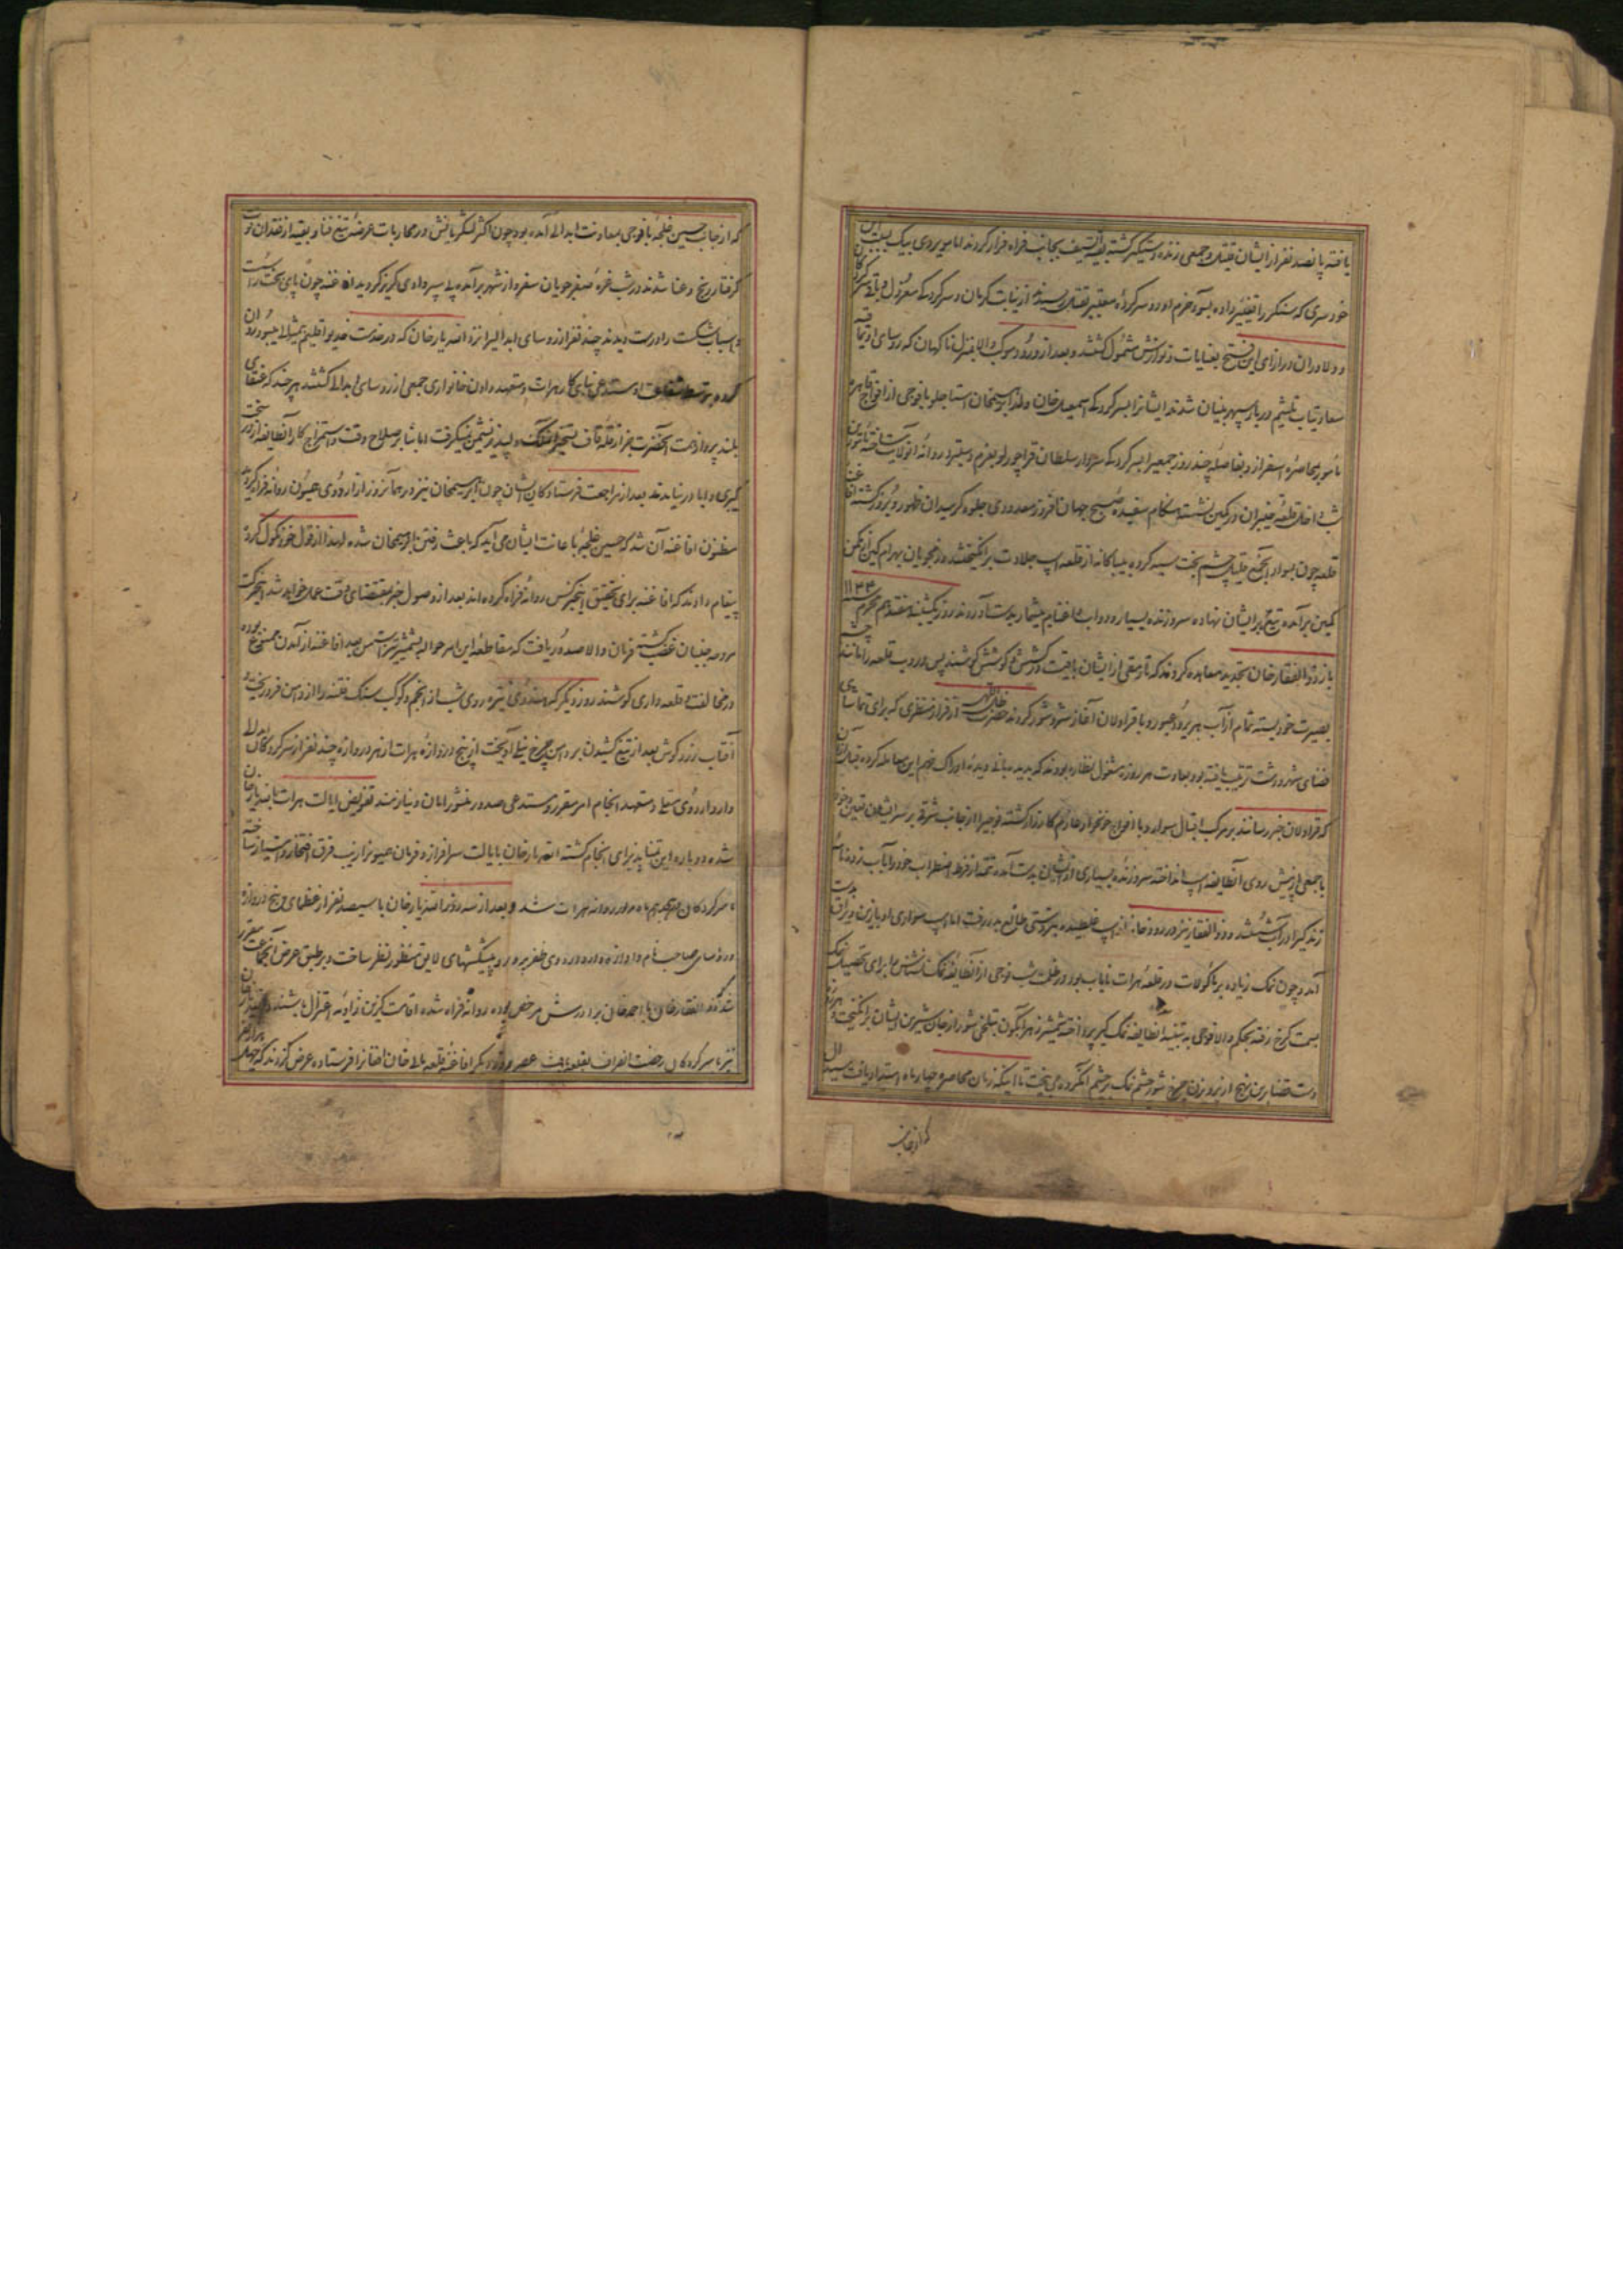 یافته پانصد نفر از ایشان قتیل و جمعی زنده دستگیر گشته بقیة السیف بجانب فراه فرار کردند اما میرزدی بیک بسبب این
خودسری که سنگر را تغییر داده بسوء حزم او دو سرکرده معتبر بقتل رسیدند از نیابت کرمان و سرکردگی معزول و
و دلاوران در ازای این فتح بعنایات و نوازش مشمول گشتند و بعد از ورود موکب والا بمنزل ناگهان که روسای اویماقیه
سعادتیاب تلثیم دربار سپهر بنیان شدند ایشان را بسرکردگی اسمعیل خان ولد ابراهیمخان استاجلو با فوجی از افواج قاهره
مأمور بمحاصره اسفزار و بفاصله چند روز جمعی را بسرکردگی سردار سلطان قراچورلو بعزم دستبرد روانه آنولایت ساخته مأمورین
شب داخل قلعه خیبران در کمین نشسته هنگام سفیده صبح جهان افروز معدودی جلوه گر میدان ظهور و بروز گشته افاغنه
قلعه چون سواد آنجمع قلیل بچشم بخت سیه کرده بیباکانه از قلعه اسب جلادت برانگیختند رزمجویان بهرام کین از مکمن
کمین برآمده تیغ بر ایشان نهاده سر و زنده بسیار و دواب و اغنایم بیشمار بدست آوردند روز یکشنبه هفدهم محرم ۱۱۴۴
باز ذوالفقار خان تجدید معاهده کردند که تا رمقی از ایشان باقیست در کشش و کوشش کوشند پس در و دروب قلعه را مانند چشم
بصیرت خود بسته تمام از آب هریرود عبور و با قراولان آغاز شر و شور کردند حضرت ظل اللهی از فراز منظری که برای تماشای
فضای شهر و دشت ترتیب یافته بود بعادت هر روزه مشغول نظاره بودند که بدیده بانی دیده ادراک فهم این معامله کرده قبل از آن
که قراولان خبر رسانند بر مرکب اقبال سوار و با افواج خونخوار عازم کارزار گشته فوجی را از جانب شرقی بر سر ایشان تعیین و خود
با جمعی از پیش روی آنطایفه اسب انداخته سر و زنده بسیاری از ایشان بدست آمده تتمه از فرط اضطراب خود را بآب زده
زندگی را در آب شستند و ذوالفقار نیز در رودخانه از اسب غلطیده بزشتی طالع بدر رفت اما اسب سواری او با زین و یراق بدست
آمد و چون نمک زیاده بر ماکولات در قلعه هرات نایاب بود در ظلمت شب فوجی از آنطایفه نمک نشناس برای تحصیل نمک
بسمت کرخ رفته بحکم والا فوجی به تنبیه آنطایفه نمک گیر پرداخته شمشیر زهرآبگون بتلخی شور از جان شیرین ایشان برانگیخت و هر روزه
دست قضا بدین نهج از پرویزن چرخ شور چشم نمک بر چشم آنگروه می بیخت تا اینکه زمان محاصره چهار ماه امتداد یافت سیدال
که از جانب
که از جانب حسین غلجه با فوجی بمعاونت ابدالی آمده بود چون اکثر لشکریانش در محاربات عرضه تیغ فنا و بقیه از فقدان قوت
گرفتار رنج و عنا شدند در شب غره صفر جویان سفر و از شهر برآمده پی سپر وادی گریز گردید افاغنه چون پای بخت را سست
و اسباب شکست را درست دیدند چند نفر از روسای ابدالی را نزد الله یار خان که در خدمت خدیو اقلیم بمیثلی میبود روان
کرده بتوسط شفاعت او مستدعی نیای کار هرات و متعهد دادن خانواری جمعی از روسای ابدالی گشتند هر چند که عنقای
بلند پرواز همت آنحضرت جز از قله قاف تسخیر افلاک و لپذیر نشیمن نمیگرفت اما بنا بر صلاح وقت و استمزاج کار آنطایفه از در سخت
گیری و ابا در نیامدند بعد از مراجعت فرستادگان ایشان چون ابراهیمخان نیز در همان روز از اردوی همیون روانه فراه گردید
مظنون افاغنه آن شد که حسین غلجه باعانت ایشان می آید که باعث رفتن ابراهیمخان شده لهذا از قول خود نکول کرده
پیغام دادند که افاغنه برای تحقیق اینخبر کس روانه فراه کرده اند بعد از وصول خبر بمقتضای وقت عمل خواهد شد اینحرکت
مروحه جنبان غضب گشته فرمان والا صدور یافت که مقاطعه این امر حواله بشمشیر تیز است من بعد افاغنه از آمدن ممنوع بوده
در مخالفت و قلعه داری کوشند روز دیگر که هندوی تیره روی شب از انجم و کوکب سنگ فتنه را از دامن فرو ریخت و
آفتاب زرد گوش بعد از تیغ کشیدن بر دامن چرخ نیلی آویخت از پنج دروازه هرات از هر دروازه چند نفر از سرکردگان ابدالی
وارد اردوی معلی و متعهد انجام امر مقرر و مستدعی صدور منشور امان و نیازمند تفویض ایالت هرات بالله یار خان
شده دوباره این تمنا پذیرای انجام گشته الله یار خان بایالت سرافراز و فرمان همیون را زیب فرق افتخار و امتیاز ساخته
با سرکردگان هم ماه مزبور روانه هرات شد و بعد از سه روز الله یار خان با سیصد نفر از عظمای پنج دروازه
و روسای صاحب نام و آوازه وارد اردوی ظفر بهره و پیشکشهای لایق منظور نظر ساخت و بر طبق عرض آنجماعت مقرر
شد که ذوالفقار خان با احمد خان برادرش مرخص بوده روانه فراه شده اقامت گزین زاویه اعتزال باشند و الله یار خان
نیز با سرکردگان رخصت انصراف بقلعه یافت عصر روز دیگر افاغنه قلعه بالله خان افغان را فرستاده عرض کردند که چهل هزار نفر